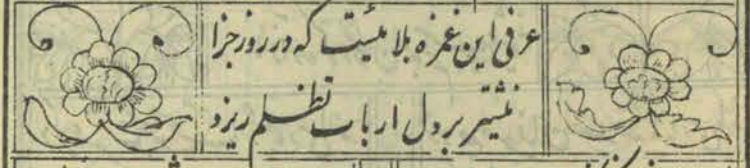 عرفی این غمزه بلائیست که در روز جزا
نیشتر بر دل ارباب تظلم ریزد